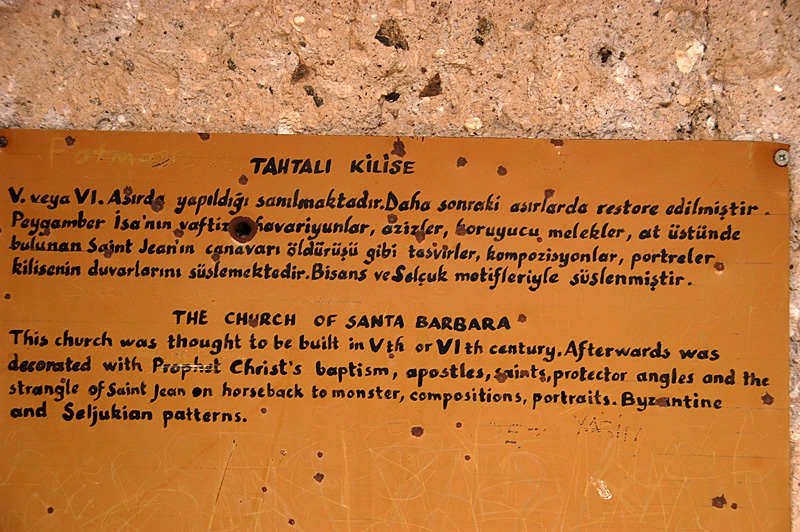 Fatma
TAHTALI KİLİSE
V. veya VI. Asırda yapıldığı sanılmaktadır.Daha sonraki asırlarda restore edilmiştir.
Peygamber İsa'nın vaftiz havariyunlar, azizler, koruyucu melekler, at üstünde
bulunan Saint Jean'ın canavarı öldürüşü gibi tasvirler, kompozisyonlar, portreler
kilisenin duvarlarını süslemektedir.Bisans ve Selçuk motifleriyle süslenmiştir.
THE CHURCH OF SANTA BARBARA
This church was thought to be built in Vth or VIth century.Afterwards was
decorated with Prophet Christ's baptism, apostles, saints,protector angles and the
strangle of Saint Jean on horseback to monster, compositions, portraits. Byzantine
and Seljukian patterns.
YASİN